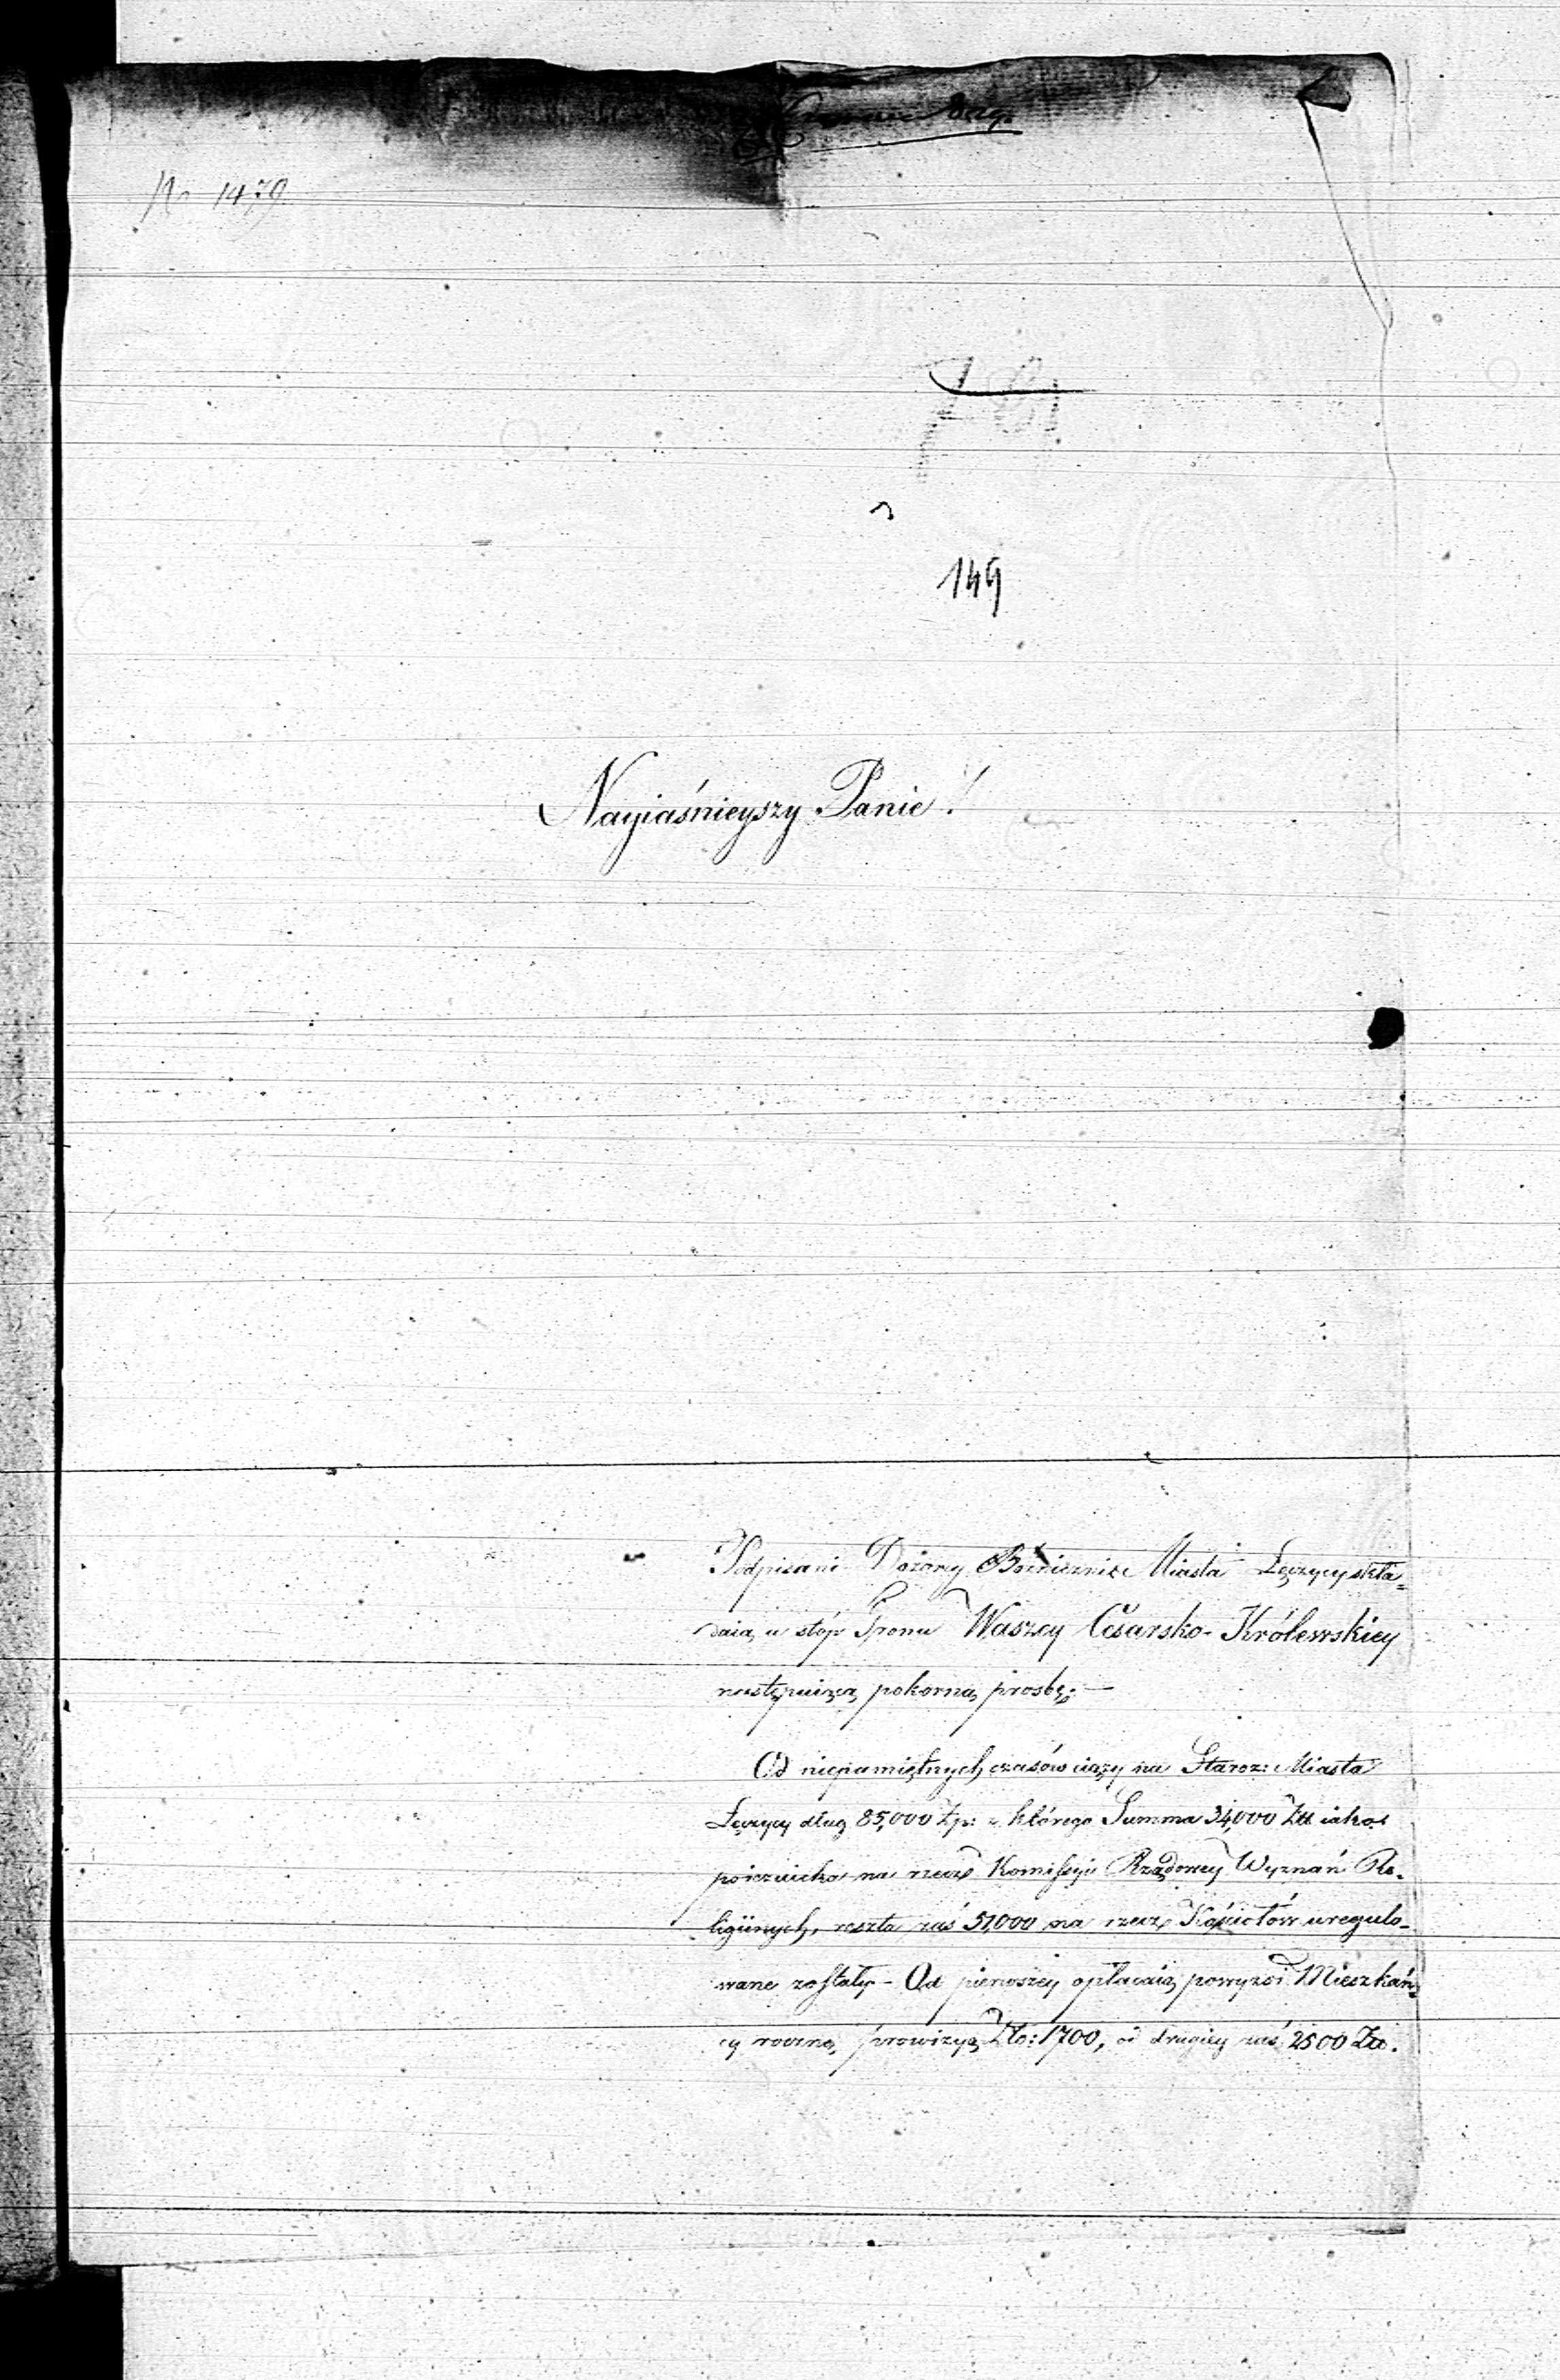 No 1479
149
Nayiaśnieyszy Panie!
Podpisani Dozory Bóżnicznice Miasta Łęczycy skła=
daią u stóp Tronu Waszey Cesarsko-Królewskiey
następuiącą pokorną prosbę: —
Od niepamiętnych czasów ciąży na Staroz: Miasta
Łęczycy dług 85,000 Zp: z którego Summa 34,000 Złt iako
poiezuicka na rzecz Komissyi Rządowey Wyznań Re-
ligiinych, reszta zaś 51,000 na rzecz Kościołów uregulo-
wane zostały - Od pierwszey opłacaią powyżsi Mieszkań=
cy roczną prowizyą Zło: 1700, od drugiey zaś 2500 Złt.